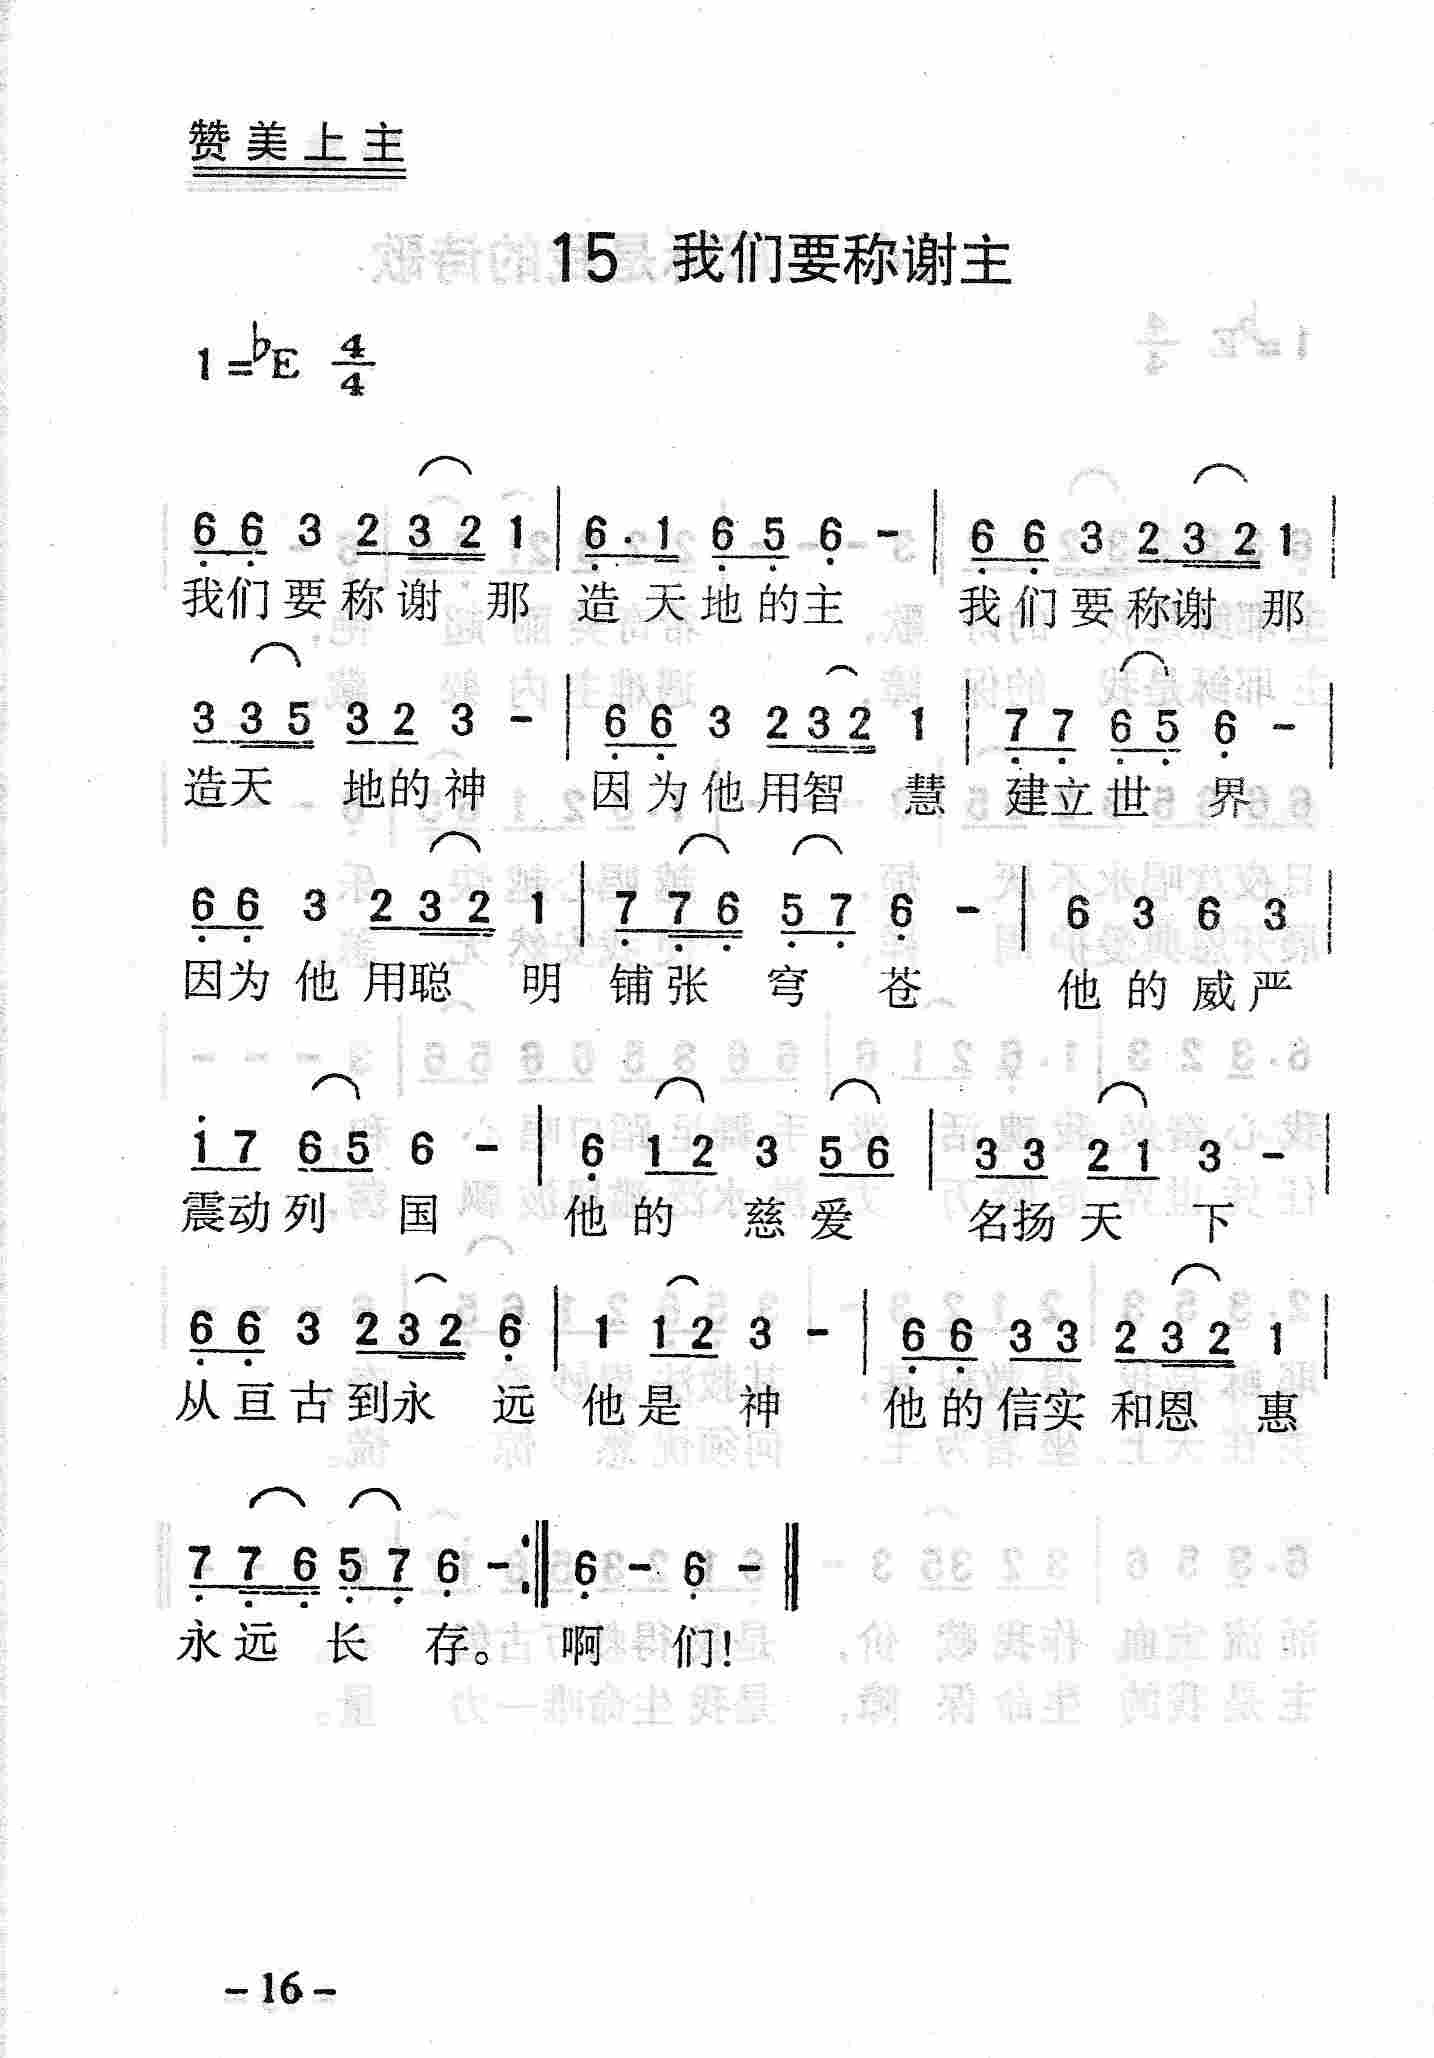 赞美上主
15 我们要称谢主
1=♭E 4/4
6 6 3 2 3 2 1 | 6 · 1 6 5 6 - | 6 6 3 2 3 2 1 |
我们要称谢 那 造天地的主 我们要称谢 那
3 3 5 3 2 3 - | 6 6 3 2 3 2 1 | 7 7 6 5 6 - |
造天 地的神 因为他用智 慧 建立世 界
6 6 3 2 3 2 1 | 7 7 6 5 7 6 - | 6 3 6 3 |
因为他用聪 明 铺张 穹 苍 他的威严
i 7 6 5 6 - | 6 1 2 3 5 6 | 3 3 2 1 3 - |
震动列 国 他的 慈爱 名扬天 下
6 6 3 2 3 2 6 | 1 1 2 3 - | 6 6 3 3 2 3 2 1 |
从亘古到永 远 他是 神 他的信实和恩 惠
7 7 6 5 7 6 - :‖ 6 - 6 - ‖
永远 长 存。 啊 们!
- 16 -